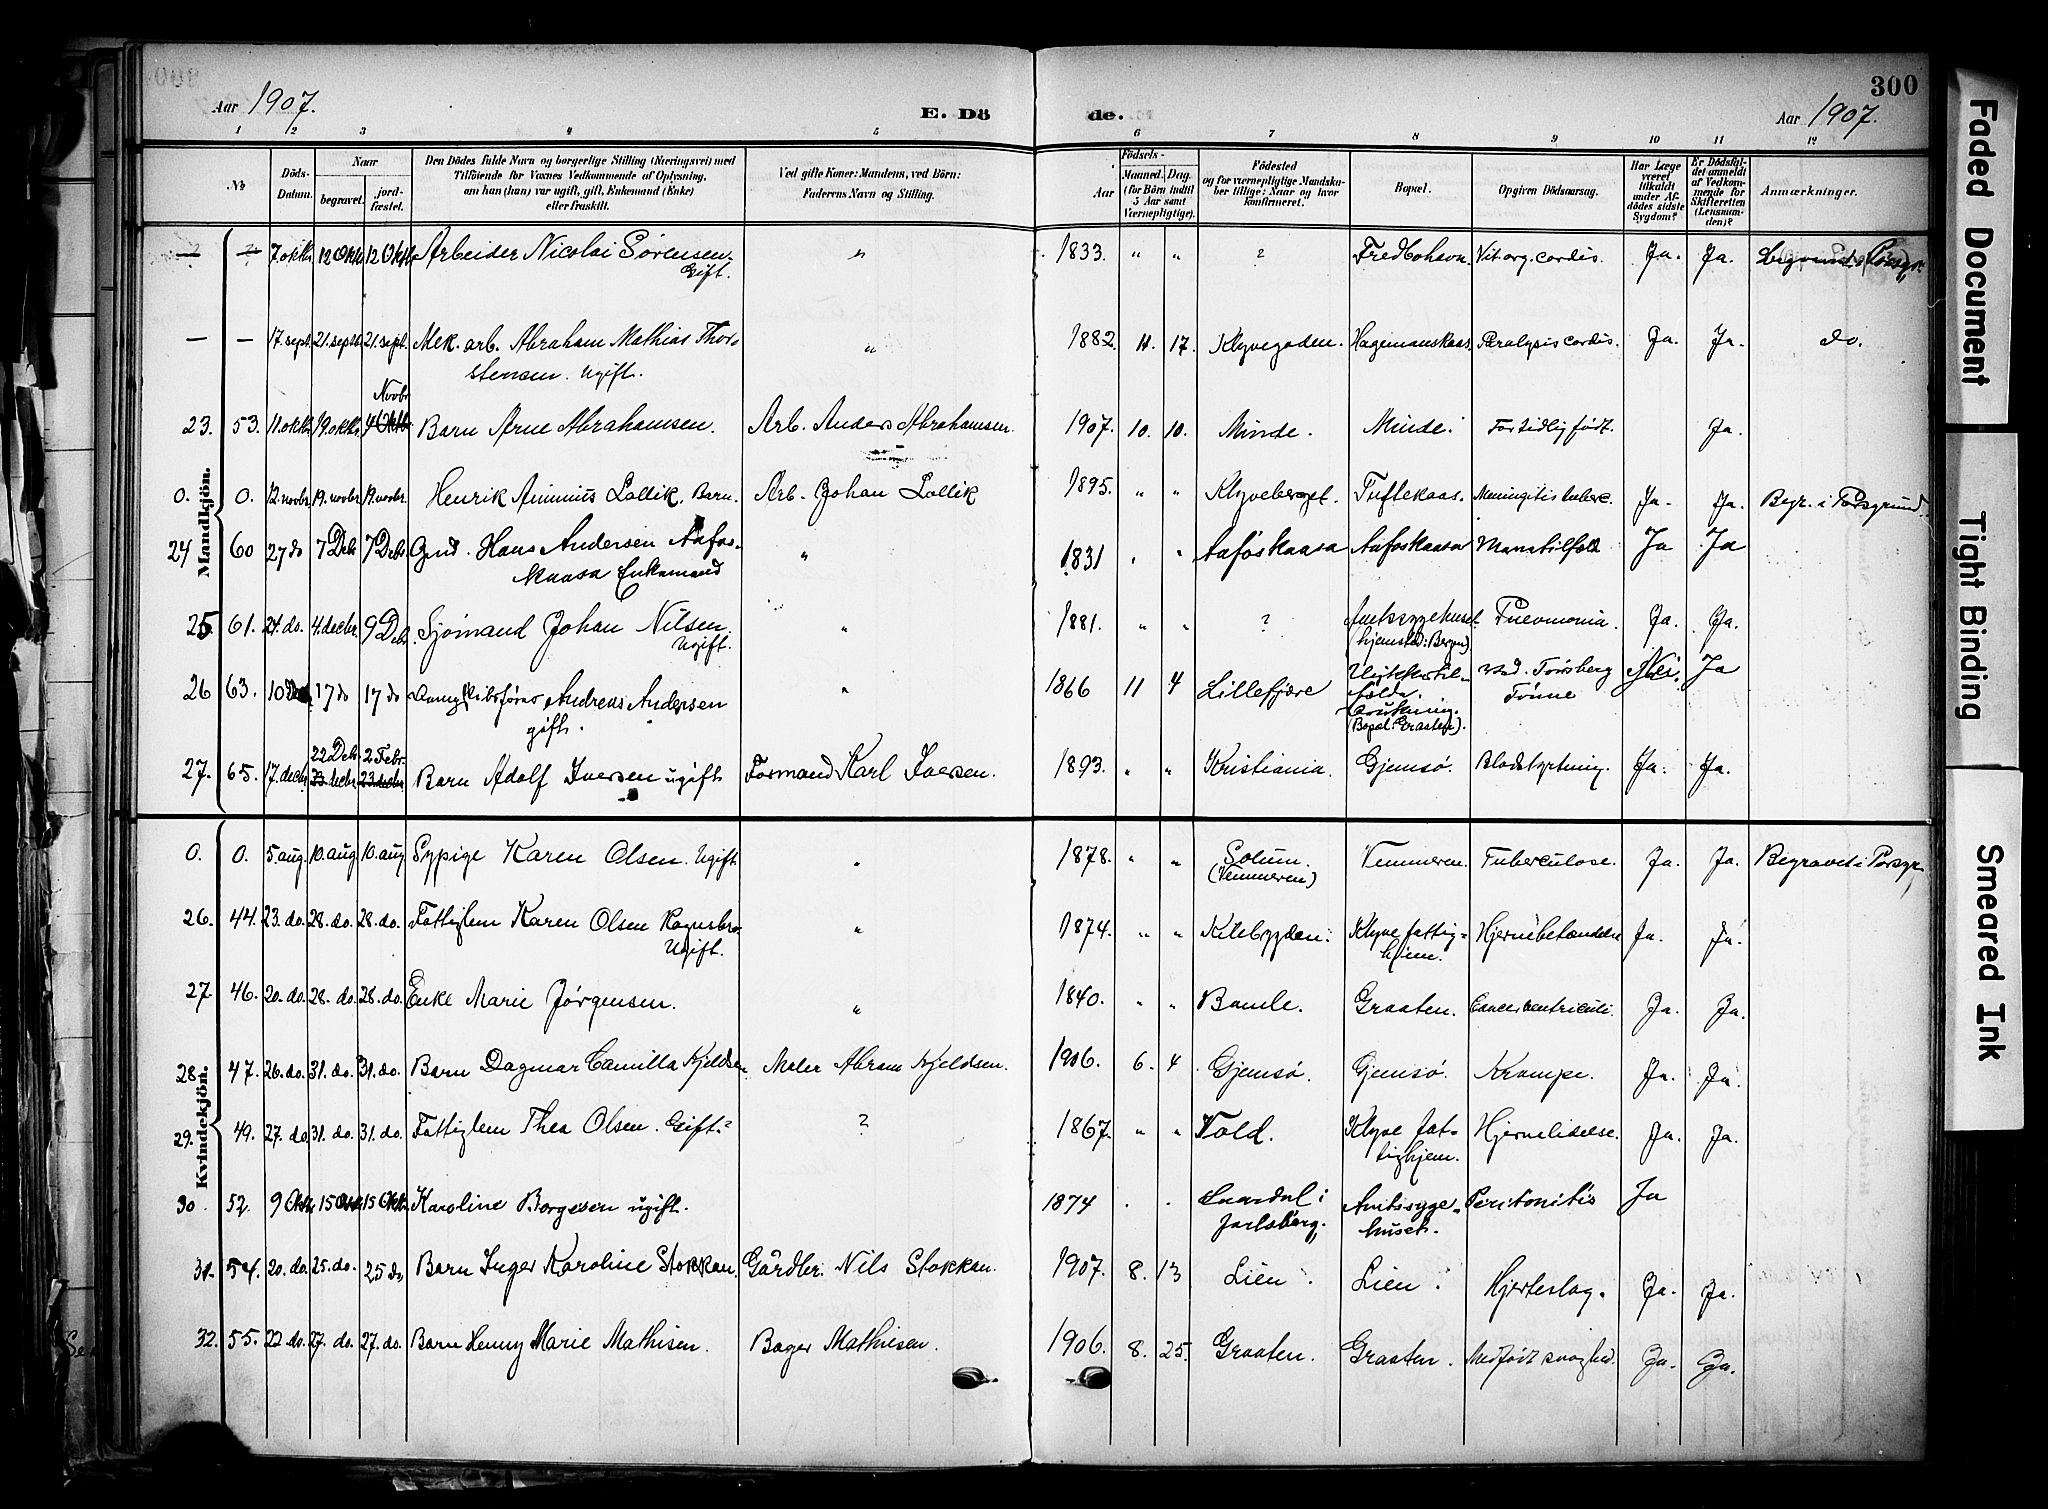 Aar 1907.
E. Dö
de.
300
Aar 1907.
1 2 3 4 5 6 7 8 9 10 11 12
№
Döds-Datum.
Naar
begravet.
jord-fæstet.
Den Dödes fulde Navn og borgerlige Stilling (Næringsvei) med
Tilföiende for Voxnes Vedkommende af Oplysning,
om han (hun) var ugift, gift, Enkemand (Enke)
eller fraskilt.
Ved gifte Koner: Mandens, ved Börn:
Faderens Navn og Stilling.
Födsels-
Aar
Maaned. Dag.
(for Börn indtil
5 Aar samt
Værnepligtige).
Födested
og for værnepligtige Mandska-
ber tillige: Naar og hvor
konfirmeret.
Bopæl.
Opgiven Dödsaarsag.
Har Læge
været
tilkaldt
under Af-
dödes sidste
Sygdom?
Er Dödsfal-
det anmeldt
af Vedkom-
mende for
Skifteretten
(Lensman-
den)?
Anmærkninger.
Mandkjön.
7. oktr. 12 Oktr 12 Oktr Arbeider Nicolai Sørensen. " 1833. " " ? Fredbohavn. Vit. org. cordis. Ja. Ja. Begravet i Porsgr.
Gift.
— — 17. sept. 21. sept. 21. sept. Mek. arb. Abraham Mathias Thor- " 1882. 11. 17. Klyvegaden. Hagemanskaas. Paralysis cordis. Ja. Ja. do.
stensen. Ugift.
Novbr
23. 53. 11. oktr. 19. oktr. 4 Oktbr Barn Arne Abrahamsen. Arb. Anders Abrahamsen. 1907. 10. 10. Minde. Minde. For tidlig født. Ja.
0. 0. 12. novbr. 19. novbr. 19. novbr. Henrik Lollik. Barn. Arb. Johan Lollik 1895. " " Klyveberget. Tuftekaas. Meningitis tuberc. Ja. Ja. Begr. i Porsgrund.
24 60 27 do 7 Debr 7 Debr Gmd. Hans Andersen Aafos- " 1831 " " Aafoskaasa Aafoskaasa Marasmus Ja Ja
kaasa Enkemand
25. 61. 24. do. 4. decbr. 9 Debr. Sjömand Johan Nilsen. " 1881. " " ? Amtssygehuset. Pneumonia. Ja. Ja.
Ugift. (hjemsted: Bergen)
26 63. 10 17 do 17 do Andreas Andersen " 1866 11 4 Lillefjære ved Torsberg Nei. Ja
gift. Tønne
(Bopæl: Graaten).
22 Debr. 2 Febr.
27. 65. 17. decbr. 23. decbr. 23. decbr. Barn Adolf Iversen ugift Formand Karl Iversen. 1893. " " Kristiania. Gjemsø. Blodstyrtning. Ja. Ja.
Kvindekjön.
0. 0. 5. aug. 10. aug 10. aug Sypige Karen Olsen. Ugift. " 1878. " " Solum. Vemmeren. Tuberculose. Ja. Ja. Begravet i Porsgr.
(Vemmeren)
26. 44. 23. do. 28. do. 28. do. Fattiglem Karen Olsen Ugift. " 1874. " " Kilebygden. Klyve fattig- Hjernebetændelse Ja. Ja.
hjem.
27 46. 20. do. 28. do. 28. do. Enke Marie Jørgensen. " 1840. " " Bamle. Graaten. Cancer ventriculi. Ja. Ja.
28. 47. 26. do. 31. do. 31. do. Barn Dagmar Camilla Kjeldsen. Maler Abram Kjeldsen. 1906. 6. 4 Gjemsø. Gjemsø. Krampe. Ja. Ja.
29. 49. 27. do 31. do. 31. do. Fattiglem Thea Olsen. Gift? ? 1867. " " Vold. Klyve fat- Hjernelidelse. Ja. Ja.
tighjem.
30. 52. 9 Oktr. 15 Oktr 15 Oktr. Karoline Borgesen ugift. 1874 . . i Amtssyge- Peritonitis Ja
Jarlsberg. huset.
31. 54. 20. do. 25. do. 25 do Barn Inger Karoline Stokkan. Gårdbr. Nils Stokkan. 1907. 8. 13 Lien. Lien. Hjerteslag. Ja. Ja.
32. 55. 22 do. 27. do. 27. do. Barn Henny Marie Mathisen. Bager Mathiesen. 1906. 8. 25. Graaten. Graaten. Medfødt svaghed. Ja. Ja.
Faded Document
Tight Binding
Smeared Ink